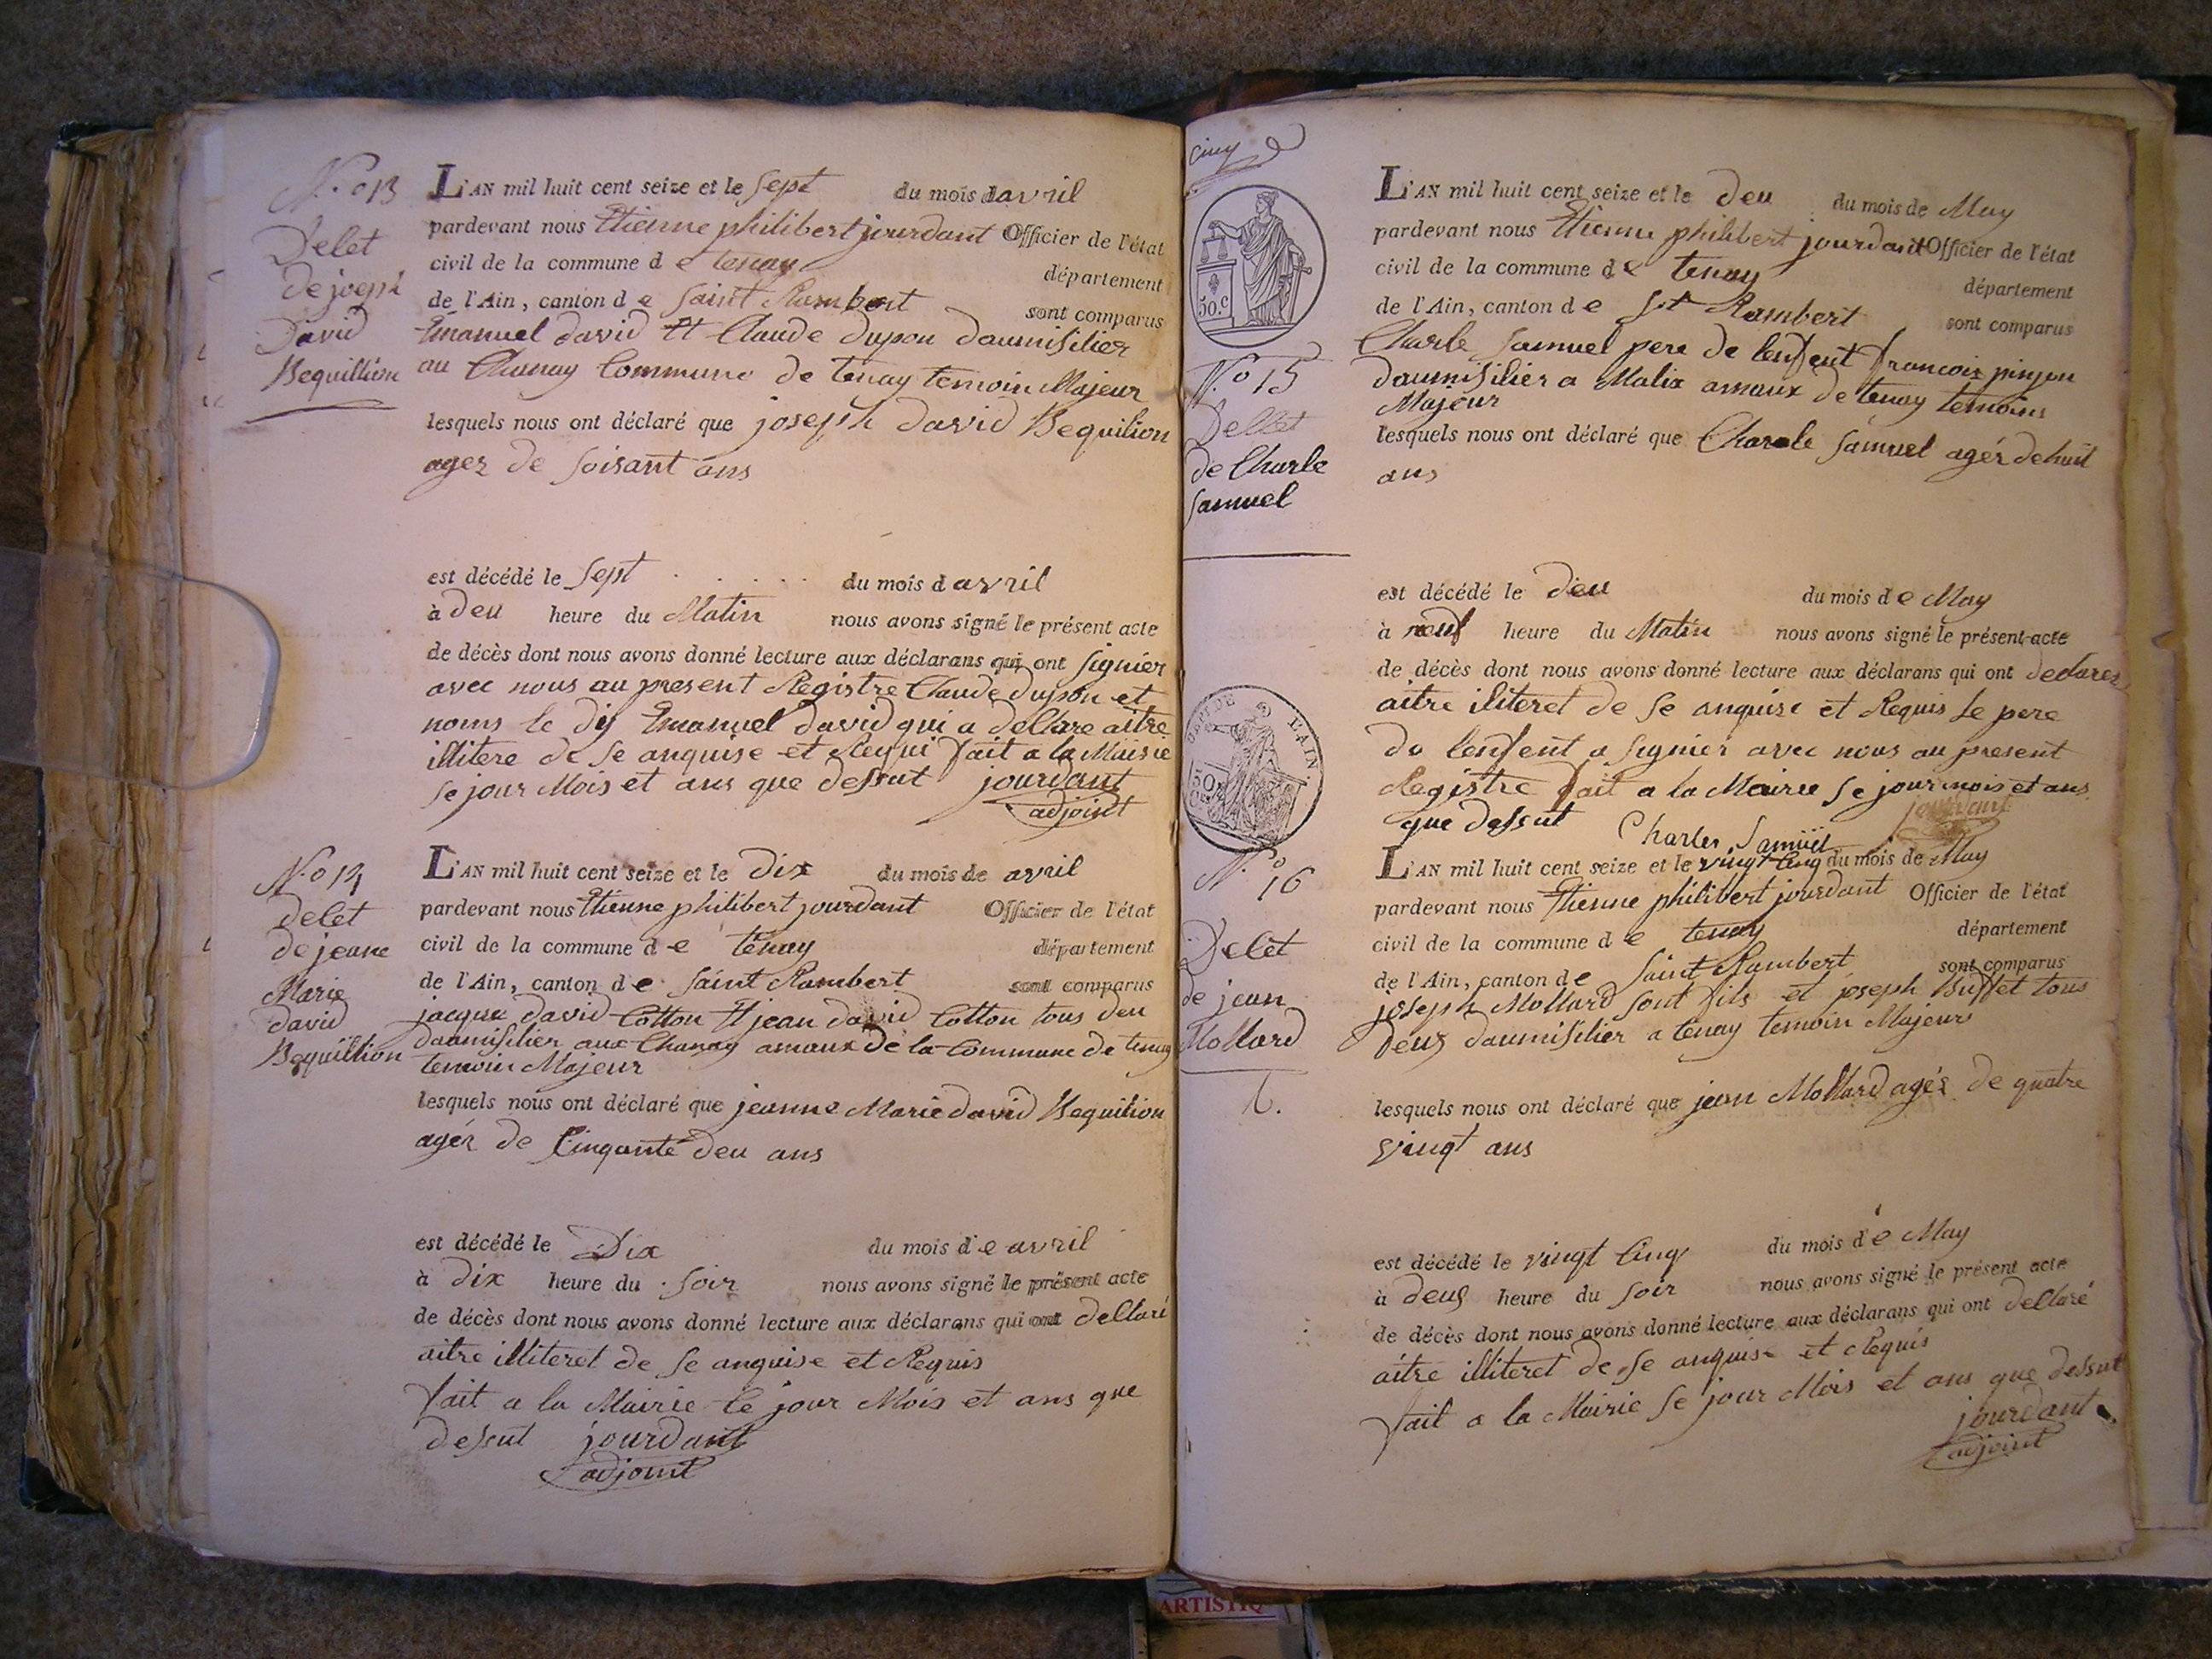 N.o 13
Delet
de joseph
David
Bequillion
L'AN mil huit cent seize et le sept du mois d avril
pardevant nous Etienne philibert jourdant Officier de l'état
civil de la commune d e tenay département
de l'Ain, canton d e saint Rambert sont comparus
Emanuel david Et Claude dupon daumisilier
au Chanay Commune de tenay temoin Majeur
lesquels nous ont déclaré que joseph david Bequilion
agez de soisant ans
est décédé le sept du mois d avril
à deu heure du Matin nous avons signé le présent acte
de décès dont nous avons donné lecture aux déclarans qui ont signier
avec nous au present Registre Claude dupon et
noms le dij Emanuel david qui a dellare aitre
illitere de se anquise et Requi fait a la Mairie
se jour Mois et ans que dessut jourdant
adjoint
N.o 14
delet
de jeane
Marie
david
Bequillion
L'AN mil huit cent seize et le dix du mois de avril
pardevant nous Etienne philibert jourdant Officier de l'état
civil de la commune d e tenay département
de l'Ain, canton d e saint Rambert sont comparus
jacque david Cotton Et jean david Cotton tous deu
daumisilier aux Chanay amaux de la Commune de tenay
temoin Majeur
lesquels nous ont déclaré que jeanne Marie david Bequilion
agér de Cinqante deu ans
est décédé le Dix du mois d e avril
à dix heure du soir nous avons signé le présent acte
de décès dont nous avons donné lecture aux déclarans qui ont dellaré
aitre illiteret de se anquise et Requis
fait a la Mairie le jour Mois et ans que
dessut jourdant
adjoint
cinq
50.c
N.o 15
Dellet
de Charle
samuel
L'AN mil huit cent seize et le deu du mois de May
pardevant nous Etienne philibert jourdant Officier de l'état
civil de la commune d e tenay département
de l'Ain, canton d e st Rambert sont comparus
Charle samuel pere de lenfent francois pinjon
daumisilier a Malix amaux de tenay temoins
Majeur
lesquels nous ont déclaré que Charle samuel agér de huit
ans
est décédé le deu du mois d e May
à neuf heure du Matin nous avons signé le présent acte
de décès dont nous avons donné lecture aux déclarans qui ont declarez
aitre iliteret de se anquise et Requis le pere
du lenfent a signier avec nous au present
Registre fait a la Mairie se jour mois et ans
que dessut Charles Samuël jourdant
DE L'AIN.
50
N.o 16
Delet
de jean
Mollard
L'AN mil huit cent seize et le vingt Cinq du mois de May
pardevant nous Etienne philibert jourdant Officier de l'état
civil de la commune d e tenay département
de l'Ain, canton d e saint Rambert sont comparus
joseph Mollard sont fils et joseph Buffet tous
deus daumisilier a tenay temoin Majeur
lesquels nous ont déclaré que jean Mollard agér de quatre
vingt ans
est décédé le vingt Cinq du mois d e May
à deus heure du soir nous avons signé le présent acte
de décès dont nous avons donné lecture aux déclarans qui ont dellaré
aitre illiteret de se anquise et Requis
fait a la Mairie se jour Mois et ans que dessut
jourdant
adjoint
ARTISTIQ